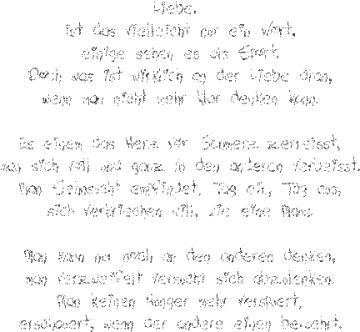 Liebe.
Ist das vielleicht nur ein Wort,
einige sehen es als Sport.
Doch was ist wirklich an der Liebe dran,
wenn man nicht mehr klar denken kann.
Es einem das Herz vor Schmerz zerreisst,
man sich voll und ganz in den anderen verbeisst.
Man Sehnsucht empfindet, Tag ein, Tag aus,
sich verkriechen will, wie eine Maus.
Man kann nur noch an den anderen denken,
man verzweifelt versucht sich abzulenken.
Man keinen Hunger mehr verspürt,
erschauert, wenn der andere einen berührt.